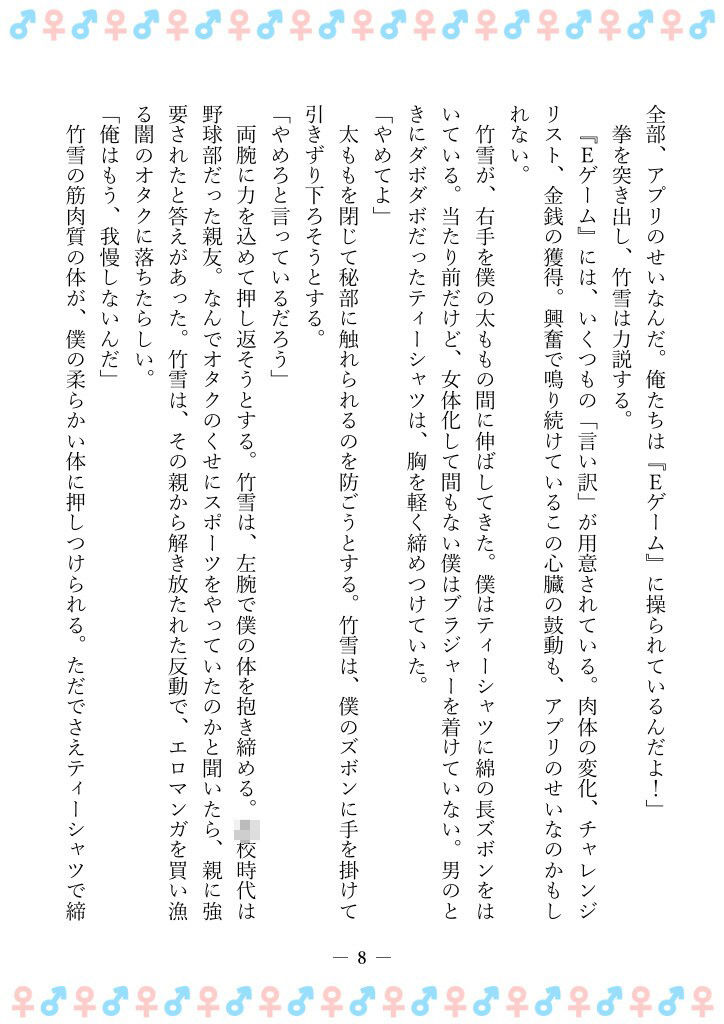 全部、アプリのせいなんだ。俺たちは『Eゲーム』に操られているんだよ！」
拳を突き出し、竹雪は力説する。
『Eゲーム』には、いくつもの「言い訳」が用意されている。肉体の変化、チャレンジ
リスト、金銭の獲得。興奮で鳴り続けているこの心臓の鼓動も、アプリのせいなのかもし
れない。
竹雪が、右手を僕の太ももの間に伸ばしてきた。僕はティーシャツに綿の長ズボンをは
いている。当たり前だけど、女体化して間もない僕はブラジャーを着けていない。男のと
きにダボダボだったティーシャツは、胸を軽く締めつけていた。
「やめてよ」
太ももを閉じて秘部に触れられるのを防ごうとする。竹雪は、僕のズボンに手を掛けて
引きずり下ろそうとする。
「やめろと言っているだろう」
両腕に力を込めて押し返そうとする。竹雪は、左腕で僕の体を抱き締める。校時代は
野球部だった親友。なんでオタクのくせにスポーツをやっていたのかと聞いたら、親に強
要されたと答えがあった。竹雪は、その親から解き放たれた反動で、エロマンガを買い漁
る闇のオタクに落ちたらしい。
「俺はもう、我慢しないんだ」
竹雪の筋肉質の体が、僕の柔らかい体に押しつけられる。ただでさえティーシャツで締
― 8 ―